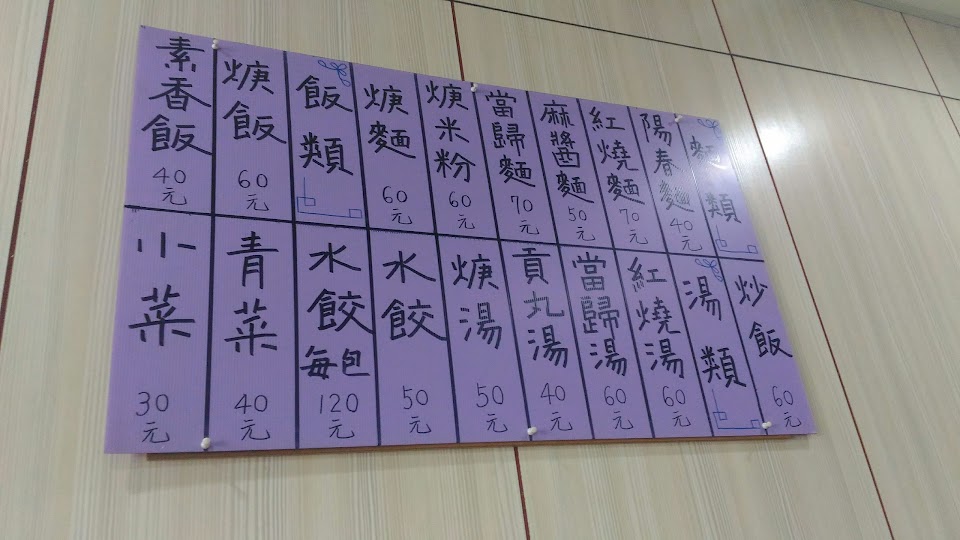 麵類
陽春麵 40元
紅燒麵 70元
麻醬麵 50元
當歸麵 70元
焿米粉 60元
焿麵 60元
飯類
焿飯 60元
素香飯 40元
炒飯 60元
湯類
紅燒湯 60元
當歸湯 60元
貢丸湯 40元
焿湯 50元
水餃 50元
水餃每包 120元
青菜 40元
小菜 30元